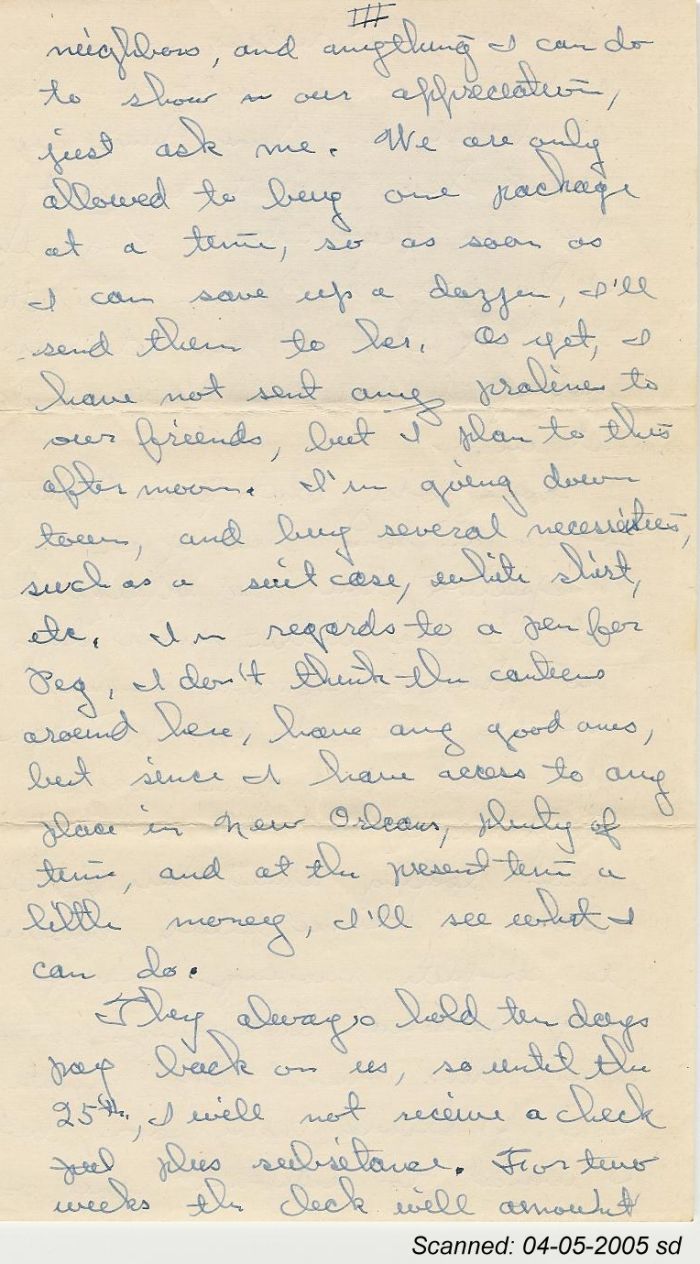 III
neighbors, and anything I can do
to show our appreciation,
just ask me. We are only
allowed to buy one package
at a time, so as soon as
I can save up a dozzen, I'll
send them to her. As yet, I
have not sent any pralines to
our friends, but I plan to this
after noon. I'm going down
town, and buy several necessities,
such as a suit case, white shirt,
etc. In regards to a pen for
Peg, I don't think the canteens
around here, have any good ones,
but since I have access to any
place in New Orleans, plenty of
time, and at the present time a
little money, I'll see what I
can do.
They always hold ten days
pay back on us, so until the
25th, I will not receive a check
plus subsitance. For two
weeks the check will amount
Scanned: 04-05-2005 sd